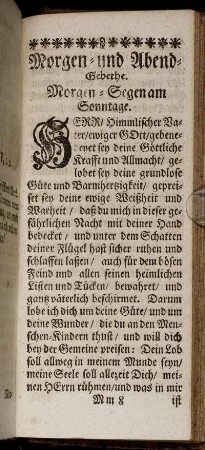 Morgen- und Abend-
Gebethe.
Morgen-Segen am
Sonntage.
HERR/ Himmlischer Va-
ter/ ewiger GOtt/ gebene-
deyet sey deine Göttliche
Krafft und Allmacht/ ge-
lobet sey deine grundlose
Güte und Barmhertzigkeit/ geprei-
set sey deine ewige Weißheit und
Warheit/ daß du mich in dieser ge-
fährlichen Nacht mit deiner Hand
bedecket/ und unter dem Schatten
deiner Flügel hast sicher ruhen und
schlaffen laßen/ auch für dem bösen
Feind und allen seinen heimlichen
Listen und Tücken/ bewahret/ und
gantz väterlich beschirmet. Darum
lobe ich dich um deine Güte/ und um
deine Wunder/ die du an den Men-
schen-Kindern thust/ und will dich
bey der Gemeine preisen: Dein Lob
soll allweg in meinem Munde seyn/
meine Seele soll allezeit Dich/ mei-
nen HErrn rühmen/ und was in mir
M m 8 ist